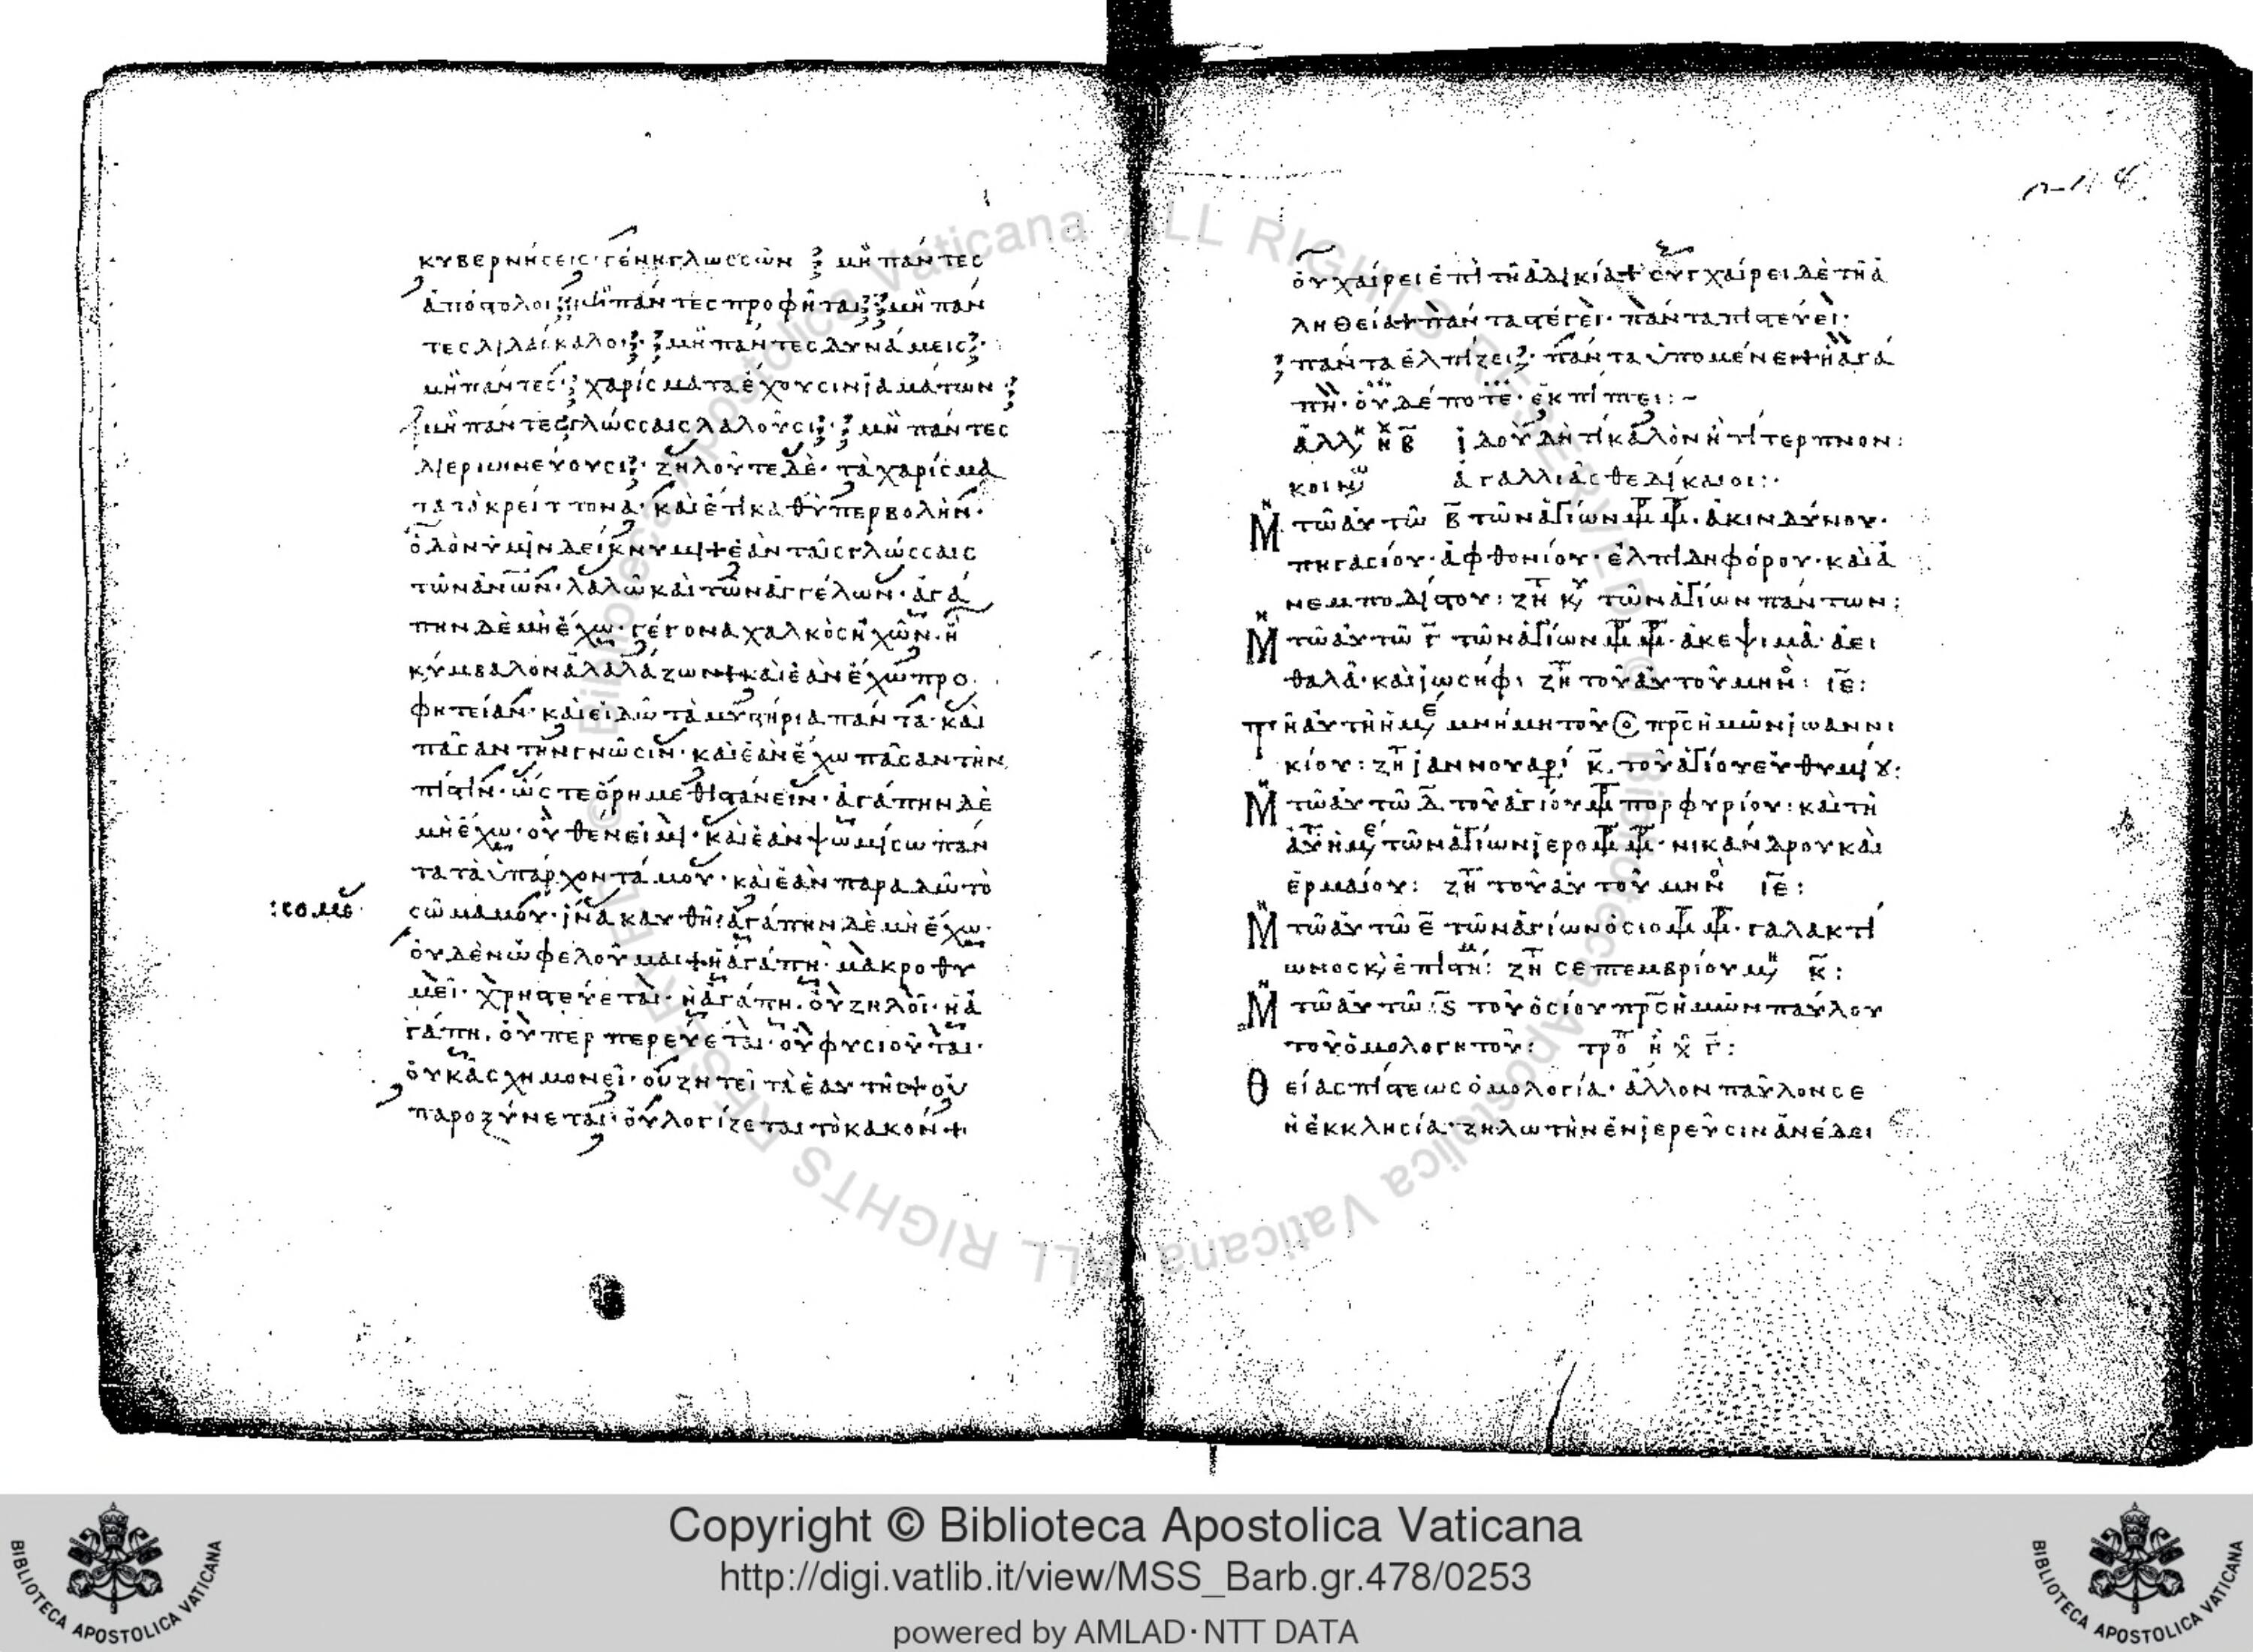 κυβερνήσεις· γένη γλωσσῶν ; μὴ πάντες
ἀπόστολοι ; μὴ πάντες προφῆται ; μὴ πάν
τες διδάσκαλοι ; μὴ πάντες δυνάμεις ;
μὴ πάντες ; χαρίσματα ἔχουσιν ἰαμάτων ;
μὴ πάντες γλώσσαις λαλοῦσι ; μὴ πάντες
διερμινεύουσι ; ζηλοῦτε δὲ· τὰ χαρίσμα
τα τὰ κρείττονα· καὶ ἔτι καθ ὑπερβολὴν·
ὁδὸν ὑμῖν δείκνυμι + ἐὰν ταῖς γλώσσαις
τῶν ἀνων· λαλῶ καὶ τῶν ἀγγέλων· ἀγά
πην δὲ μὴ ἔχω· γέγονα χαλκὸς ἠχῶν· ἢ
κύμβαλον ἀλαλάζων + καὶ ἐὰν ἔχω προ
φητείαν· καὶ εἰδῶ τὰ μυστήρια πάντα· καὶ
πᾶσαν τὴν γνῶσιν· καὶ ἐὰν ἔχω πᾶσαν τὴν
πίστιν· ὥστε ὄρη μεθιστάνειν· ἀγάπην δὲ
μὴ ἔχω· οὐθέν εἰμι· καὶ ἐὰν ψωμίσω πάν
τα τὰ ὑπάρχοντά μου· καὶ ἐὰν παραδῶ τὸ
σῶμα μου· ἵνα καυθῆ· ἀγάπην δὲ μὴ ἔχω·
οὐδὲν ὠφελοῦμαι + ἡ ἀγάπη· μακροθυ
μεῖ· χρηστεύεται· ἡ ἀγάπη· οὐ ζηλοῖ· ἡ ἀ
γάπη· οὐ περπερεύεται· οὐ φυσιοῦται·
οὐκ ἀσχημονεῖ· οὐ ζητεῖ τὰ ἑαυτῆς + οὐ
παροξύνεται· οὐ λογίζεται τὸ κακόν +
οὐ χαίρει ἐπὶ τῆ ἀδικία + συγχαίρει δὲ τῆ ἀ
ληθεία + πάντα στέγει· πάντα πιστεύει·
πάντα ἐλπίζει· πάντα ὑπομένει + ἡ ἀγά
πη· οὐδέποτε· ἐκπίπτει :~
ἀλλ ἠχ β ἰδοὺ δὴ τί καλὸν ἢ τί τερπνον :
κοιν ἀγαλλιᾶσθε δίκαιοι :
Μη τῶ αὐτῶ β τῶν ἁγίων μμ. ἀκινδύνου·
πηγασίου· ἀφθονίου· ἐλπιδηφόρου· καὶ ἀ
νεμποδίστου : ζητ κυ τῶν ἁγίων πάντων :
Μη τῶ αὐτῶ γ τῶν ἁγίων μμ. ἀκεψιμᾶ· ἀει
θαλᾶ· καὶ ἰωσήφ· ζητ τοῦ αὐτοῦ μην : ιε :
τῆ αὐτῆ ἡμε μνήμη τοῦ ὁ πρς ἡμῶν ἰωαννι
κίου : ζητ ἰαννουαρί κ. τοῦ ἁγίου εὐθυμίου :
Μη τῶ αὐτῶ δ τοῦ ἁγίου μ πορφυρίου : καὶ τῆ
αὐτ ἡμε τῶν ἁγίων ἱερομμ. νικάνδρου καὶ
ἑρμαίου : ζητ τοῦ αὐτοῦ μην ιε :
Μη τῶ αὐτῶ ε τῶν ἁγίων ὁσιομμ. γαλακτί
ωνος κ ἐπιστήμ : ζητ σεπτεμβρίου μη κ :
Μη τῶ αὐτῶ ς τοῦ ὁσίου πρς ἡμῶν παύλου
τοῦ ὁμολογητοῦ : τροπ ἠχ γ :
Θείας πίστεως ὁμολογία· ἄλλον παῦλον σε
ἡ ἐκκλησία· ζηλωτὴν ἐν ἱερεῦσιν ἀνέδει
Copyright © Biblioteca Apostolica Vaticana
http://digi.vatlib.it/view/MSS_Barb.gr.478/0253
powered by AMLAD·NTT DATA
BIBLIOTECA APOSTOLICA VATICANA
BIBLIOTECA APOSTOLICA VATICANA